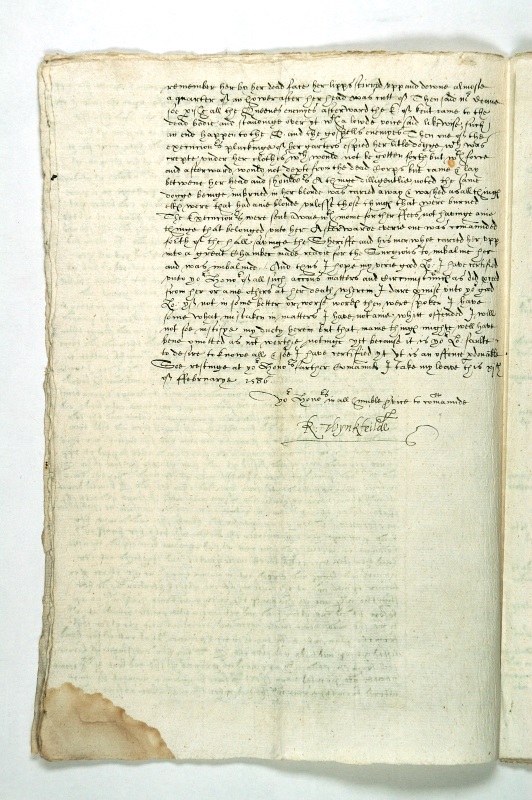 remember her by her dead face her lipps stirred upp and downe almoste
a quarter of an hower after her head was cutt of Then said mr Deane
soe pish all the Queenes enemyes afterward the E of Kent came to the
dead bodie and standinge over yt wth a lowde voice said likewise such
an end happen to the Q and the gospells enemyes Then one of the
executions plucking of her garters espied her little dogge wch was
crepte under her clothes wch would not be gotten forth but wth force
and afterward would not depte from the dead Corps but came & lay
betweene her head and shoulders A thinge diligentlie noted the same
dogge beinge imbrued in her bloude was caried awaye & washed as all things
ells were that had anie bloude unlesse those things that were burned
The Executions were sent awaie wth money for there fees not havinge anie
thinge that belonged unto her Afterwards everie one was comaunded
forth of the hall savinge the Sheriffe and his men whoe caried her upp
into a great Chamber made readie for the Surgeons to imbalme her
and was imbalmed And thus I hope my verie good Lo: I have certified
unto yo Hono of all such accons matters and circumstances as did pceed
from her or anie others at her death wherein I dare pmise unto yo good
Lo: yf not in some better or worse words then were spoken I have
somewhat mistaken in matters I have not anie whitt offended I will
not soe iustifye my duety herein but that manie things might well have
bene omitted as not worthie notinge yet because it is yo Lo: faulte
to desire to knowe all & soe I have certified yt yt is an offence pdonable
Soe restinge at yo Hono further comaund I take my leave this
of Februarye 1586
yo Hono in all humble service to comaunde
R: Wynkfeilde